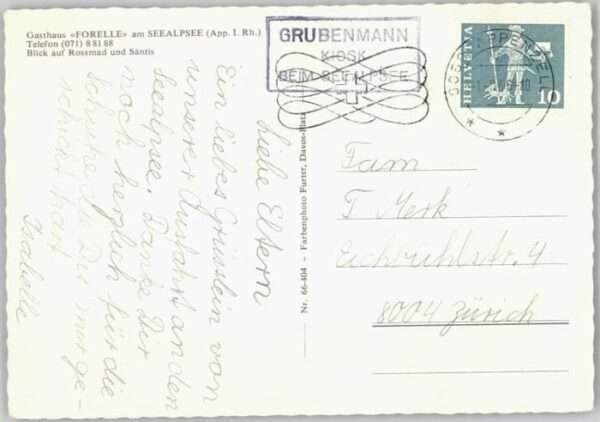 Gasthaus «FORELLE» am SEEALPSEE (App. I. Rh.)
Telefon (071) 8 81 88
Blick auf Rossmad und Säntis
GRUBENMANN
KIOSK
BEIM SEEALPSEE
HELVETIA
10
9050 APPENZELL
Liebe Eltern
Ein liebes Grüsslein von
unserer Ausfahrt an den
Seealpsee. Danke Dir
noch herzlich für die
Schuhe die Du mir ge-
schickt hast
Isabelle
Nr. 66-404 – Farbenphoto Furter, Davos-Platz
Fam
T Merk
Eichbühlstr. 4
8004 Zürich